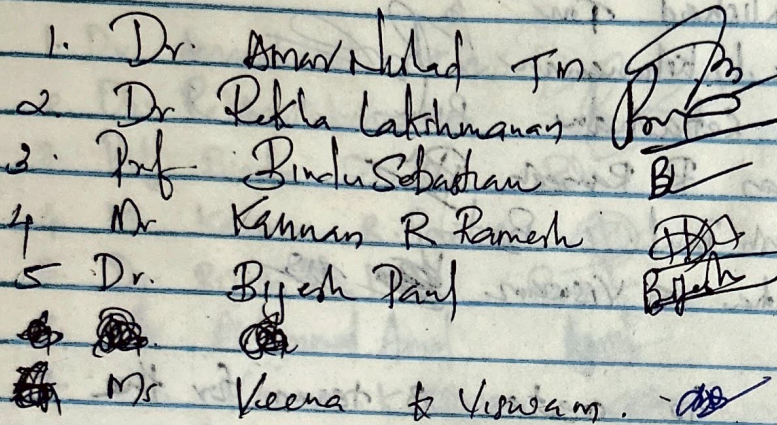 1. Dr. Amar Nishad T m.
2 Dr Rekha Lakshmanan
3. Prof Bindu Sebastian
4 Mr Kannan R Ramesh
5 Dr. Bijesh Paul Bijesh
Ms Veena Viswam.